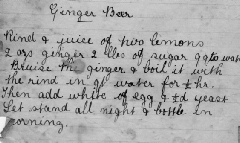 Ginger Beer
Rind & juice of two limons
2 ozs ginger 2 lbs of sugar 9 qts water
Bruise the ginger & boil it with
the rind in qt water for ½ hr.
Then add white of egg & ½d yeast
Let stand all night & bottle in
morning.